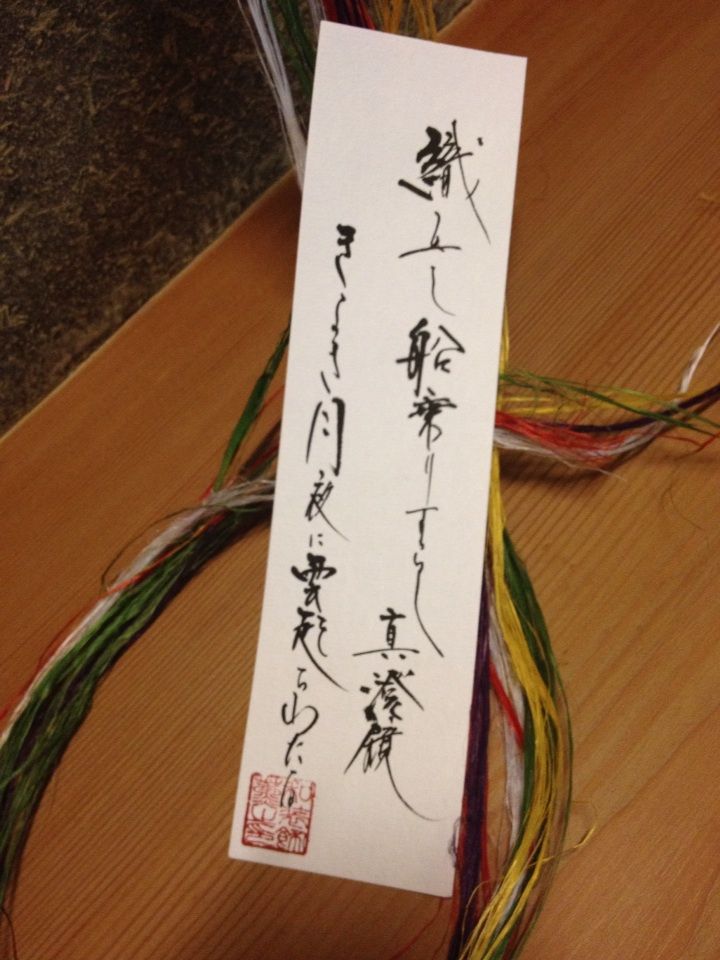 織女し船乗りすらし真澄鏡
きよき月夜に雲起ちわたる